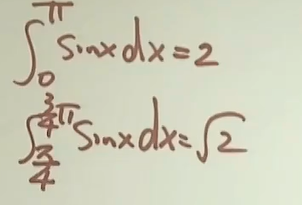 ∫₀^π sinx dx = 2
∫_{3/4}^{3/4 π} sinx dx = √2